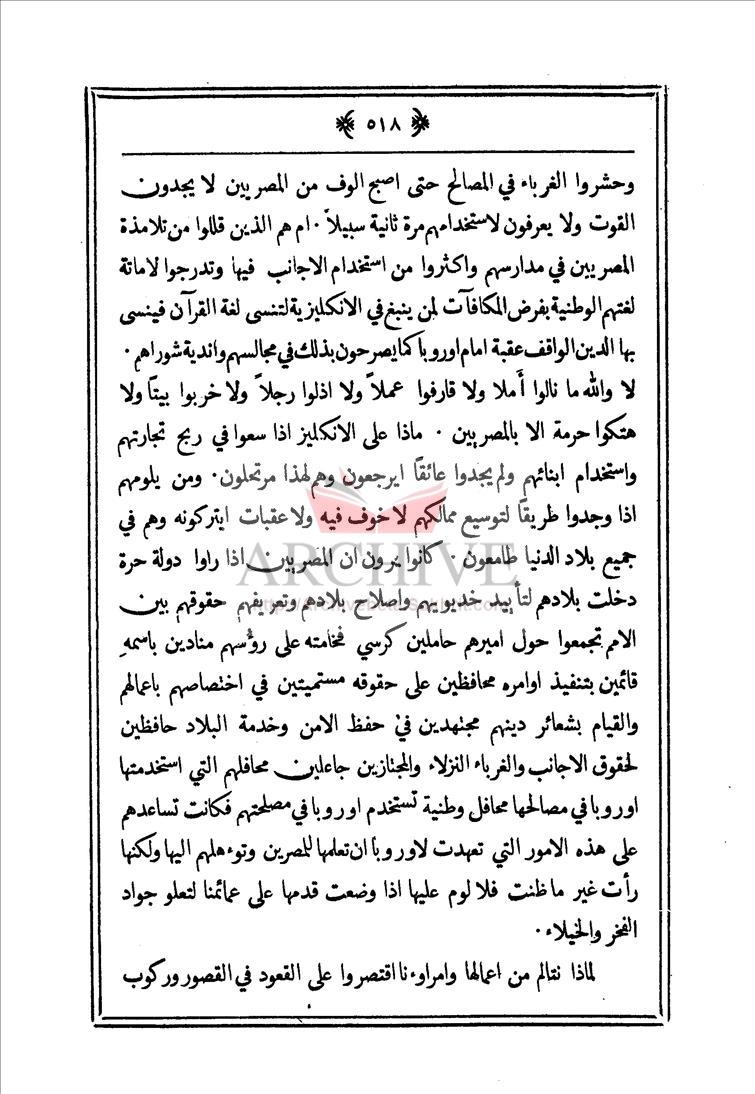 ٥١٨
وحشروا الغرباء في المصالح حتى اصبح الوف من المصريين لا يجدون
القوت ولا يعرفون لاستخدامهم مرة ثانية سبيلاً ٠ ام هم الذين قللوا من تلامذة
المصريين في مدارسهم واكثروا من استخدام الاجانب فيها وتدرجوا لاماتة
لغتهم الوطنية بفرض المكافآت لمن ينبغ في الانكليزية لتنسى لغة القرآن فينسى
بها الدين الواقف عقبة امام اوروبا كما يصرحون بذلك في مجالسهم واندية شوراهم ٠
لا والله ما نالوا أملا ولا قارفوا عملاً ولا اذلوا رجلاً ولا خربوا بيتاً ولا
هتكوا حرمة الا بالمصريين ٠ ماذا على الانكليز اذا سعوا في ربح تجارتهم
واستخدام ابنائهم ولم يجدوا عائقاً ايرجعون وهم لهذا مرتحلون ٠ ومن يلومهم
اذا وجدوا طريقاً لتوسيع ممالكهم لا خوف فيه ولا عقبات ايتركونه وهم في
جميع بلاد الدنيا طامعون ٠ كانوا يرون ان المصريين اذا راوا دولة حرة
دخلت بلادهم لتأييد خديويهم واصلاح بلادهم وتعريفهم حقوقهم بين
الامم تجمعوا حول اميرهم حاملين كرسي فخامته على رؤسهم منادين باسمهِ
قائمين بتنفيذ اوامره محافظين على حقوقه مستميتين في اختصاصهم باعمالهم
والقيام بشعائر دينهم مجتهدين في حفظ الامن وخدمة البلاد حافظين
لحقوق الاجانب والغرباء النزلاء والمجتازين جاعلين محافلهم التي استخدمتها
اوروبا في مصالحها محافل وطنية تستخدم اوروبا في مصلحتهم فكانت تساعدهم
على هذه الامور التي تعهدت لاوروبا ان تعلمها للمصرين وتوءهلهم اليها ولكنها
رأت غير ما ظنت فلا لوم عليها اذا وضعت قدمها على عمائمنا لتعلو جواد
الفخر والخيلاء ٠
لماذا نتالم من اعمالها وامراوءنا اقتصروا على القعود في القصور وركوب
ARCHIVE